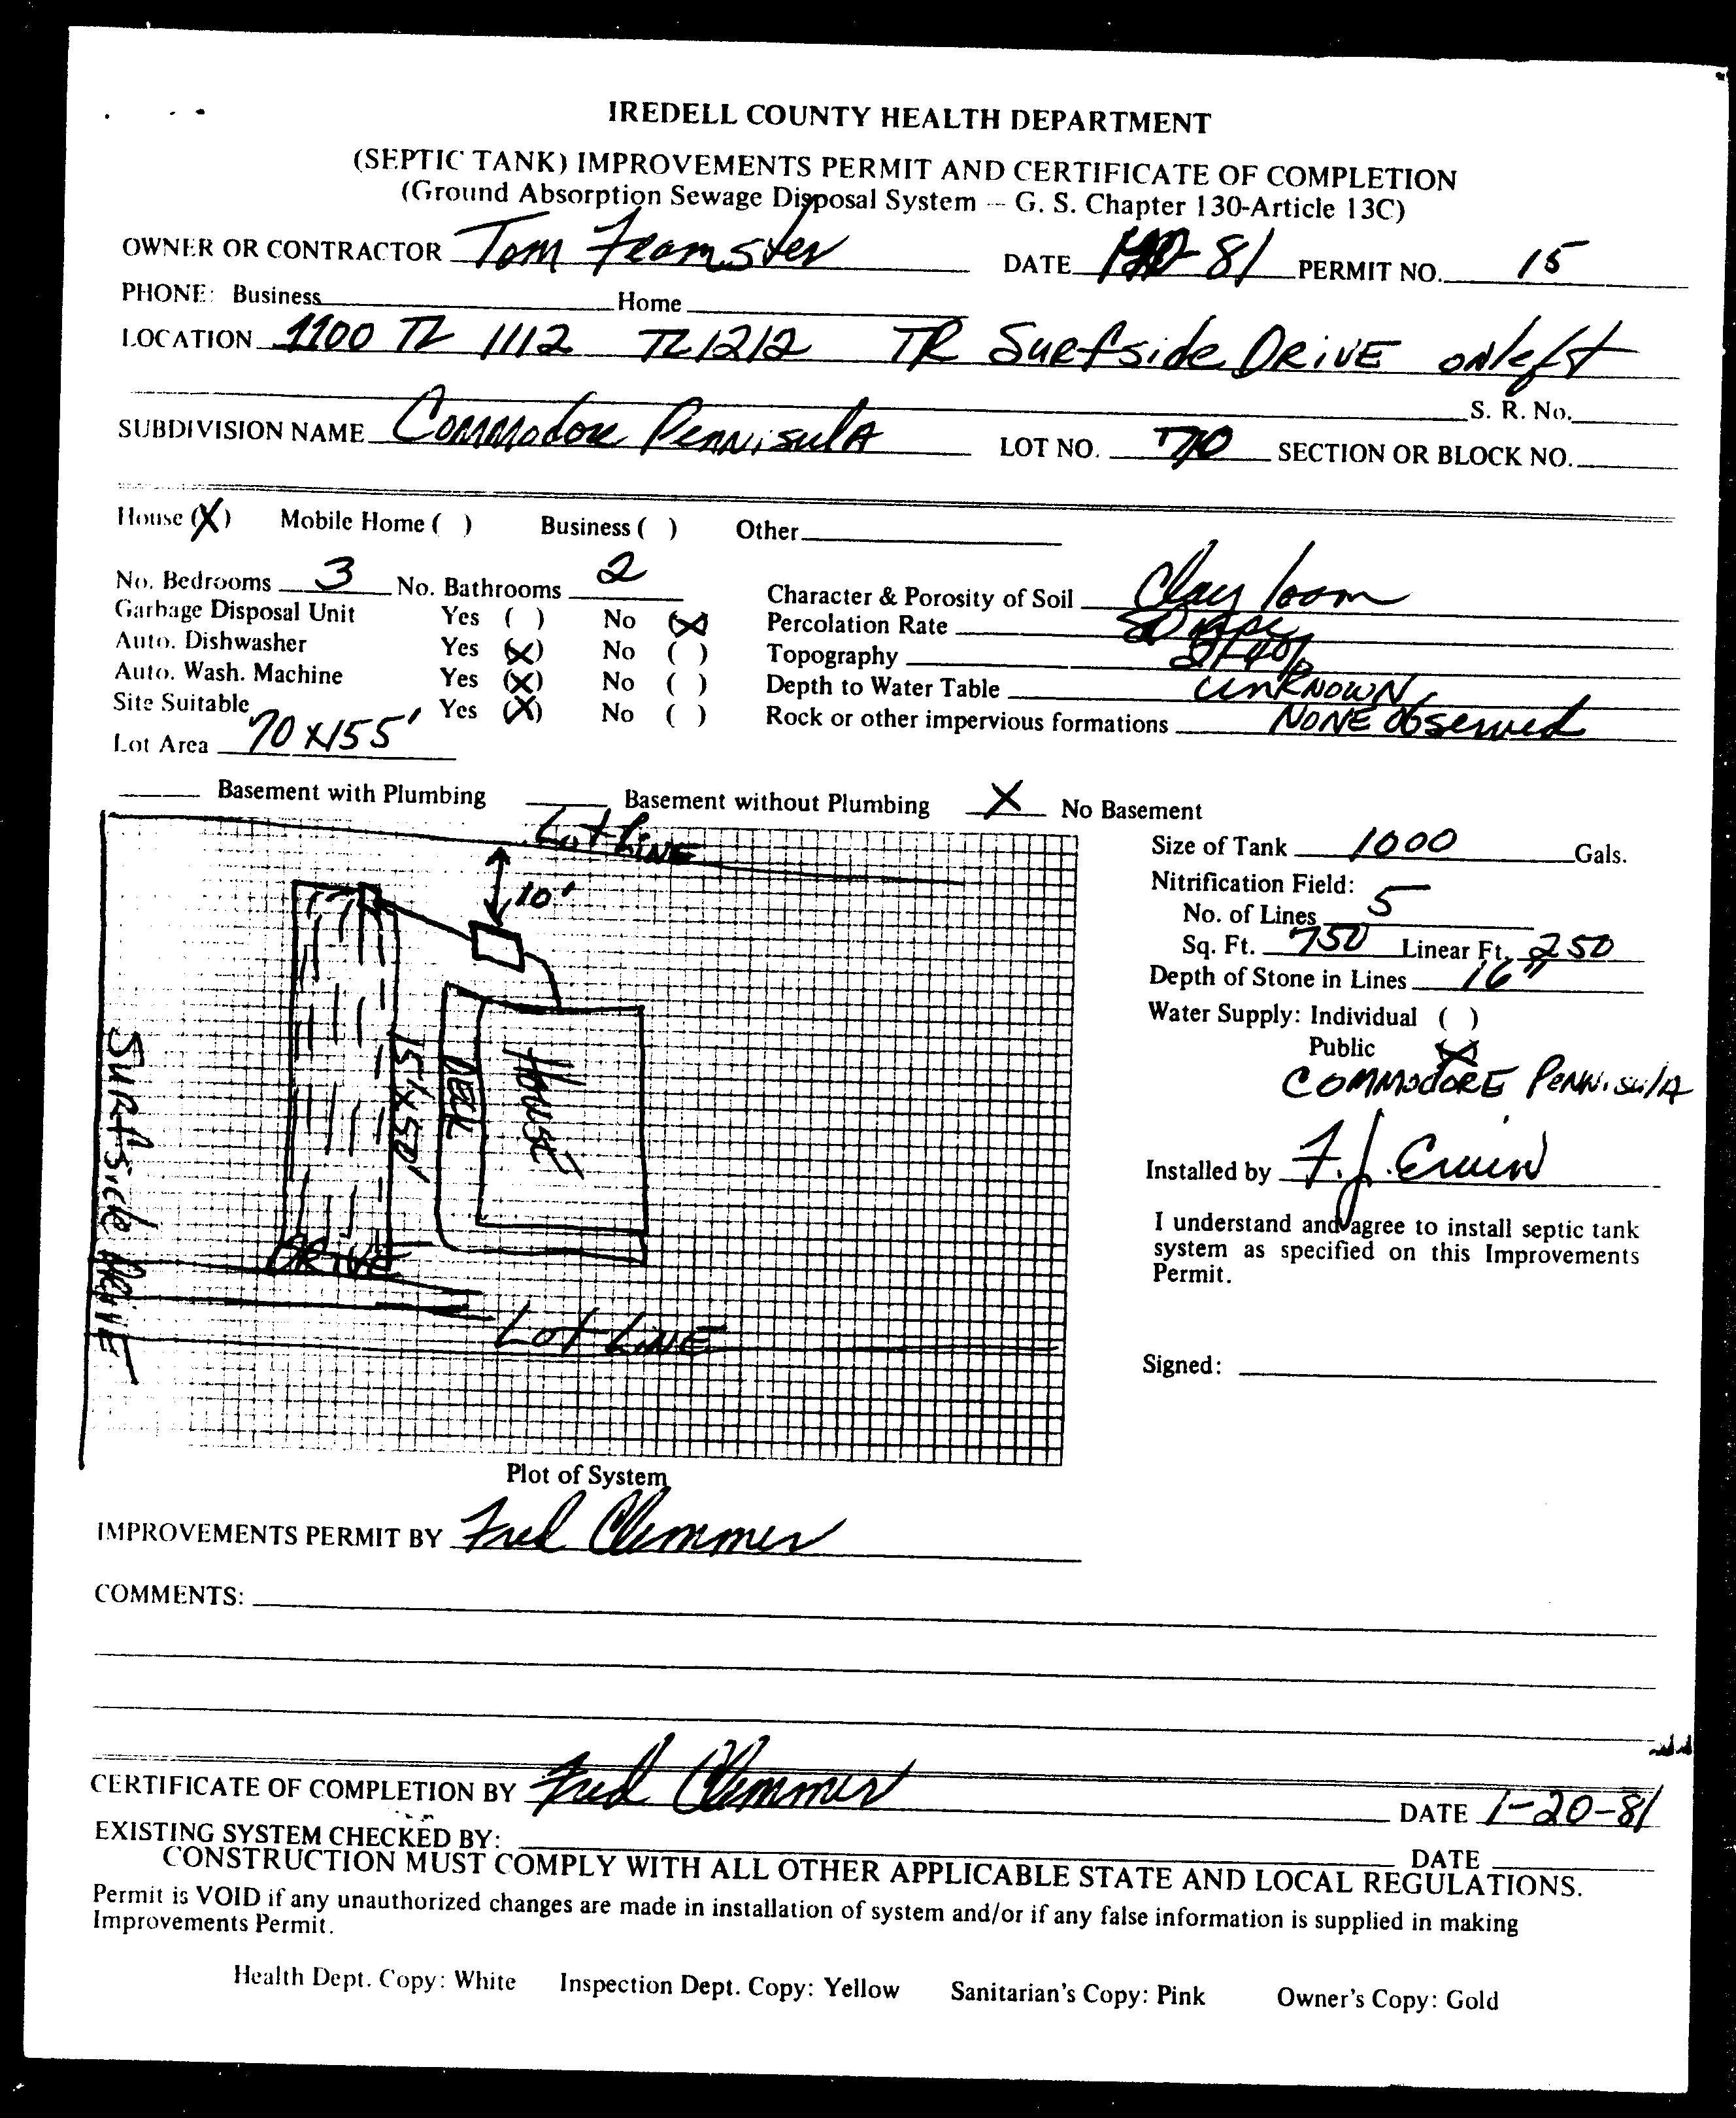 IREDELL COUNTY HEALTH DEPARTMENT
(SEPTIC TANK) IMPROVEMENTS PERMIT AND CERTIFICATE OF COMPLETION
(Ground Absorption Sewage Disposal System - G. S. Chapter 130-Article 13C)
OWNER OR CONTRACTOR Tom Feamster DATE 81 PERMIT NO. 15
PHONE: Business Home
LOCATION 1100 TL 1112 TL 1212 TR Surfside DRIVE on left
S. R. No.
SUBDIVISION NAME Commodore Pennisula LOT NO. 70 SECTION OR BLOCK NO.
House (X) Mobile Home ( ) Business ( ) Other
No. Bedrooms 3 No. Bathrooms 2
Garbage Disposal Unit Yes ( ) No (X)
Auto. Dishwasher Yes (X) No ( )
Auto. Wash. Machine Yes (X) No ( )
Site Suitable Yes (X) No ( )
Lot Area 70 x 155'
Character & Porosity of Soil Clay loam
Percolation Rate
Topography
Depth to Water Table UNKNOWN
Rock or other impervious formations NONE Observed
Basement with Plumbing Basement without Plumbing X No Basement
Lot LINE
10'
15 X 50'
DECK
House
Surfside DRIVE
DRIVE
Lot LINE
Plot of System
Size of Tank 1000 Gals.
Nitrification Field:
No. of Lines 5
Sq. Ft. 750 Linear Ft. 250
Depth of Stone in Lines 16"
Water Supply: Individual ( )
Public (X)
COMMODORE PENNISULA
Installed by F.J. Erwin
I understand and agree to install septic tank
system as specified on this Improvements
Permit.
Signed:
IMPROVEMENTS PERMIT BY Fred Clemmer
COMMENTS:
CERTIFICATE OF COMPLETION BY Fred Clemmer DATE 1-20-81
EXISTING SYSTEM CHECKED BY: DATE
CONSTRUCTION MUST COMPLY WITH ALL OTHER APPLICABLE STATE AND LOCAL REGULATIONS.
Permit is VOID if any unauthorized changes are made in installation of system and/or if any false information is supplied in making
Improvements Permit.
Health Dept. Copy: White Inspection Dept. Copy: Yellow Sanitarian's Copy: Pink Owner's Copy: Gold